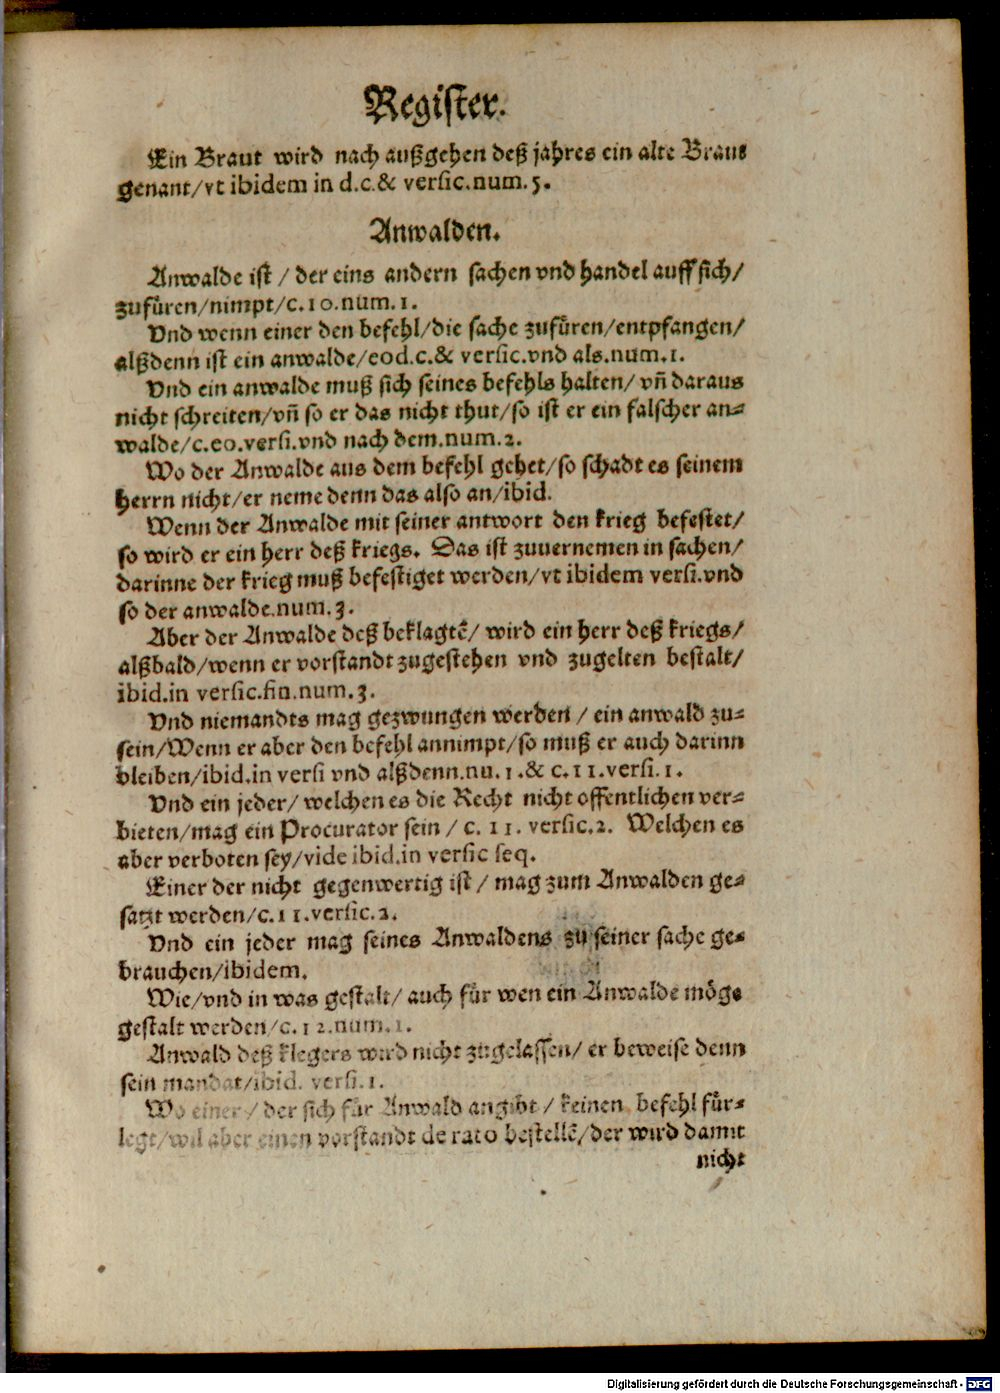 Register.
Ein Braut wird nach außgehen deß jahres ein alte Braut
genant/vt ibidem in d.c.& versic.num.5.
Anwalden.
Anwalde ist / der eins andern sachen vnd handel auff sich/
zufüren/nimpt/c.10.num.1.
Vnd wenn einer den befehl/die sache zufüren/entpfangen/
alßdenn ist ein anwalde/eod.c.& versic.vnd als.num.1.
Vnd ein anwalde muß sich seines befehls halten/ vñ daraus
nicht schreiten/vñ so er das nicht thut/so ist er ein falscher an=
walde/c.eo.versi.vnd nach dem.num.2.
Wo der Anwalde aus dem befehl gehet/so schadt es seinem
herrn nicht/er neme denn das also an/ibid.
Wenn der Anwalde mit seiner antwort den krieg befestet/
so wird er ein herr deß kriegs. Das ist zuuernemen in sachen/
darinne der krieg muß befestiget werden/vt ibidem versi.vnd
so der anwalde.num.3.
Aber der Anwalde deß beklagtẽ/ wird ein herr deß kriegs/
alßbald/wenn er vorstandt zugestehen vnd zugelten bestalt/
ibid.in versic.fin.num.3.
Vnd niemandts mag gezwungen werden / ein anwald zu=
sein/Wenn er aber den befehl annimpt/so muß er auch darinn
bleiben/ibid.in versi vnd alßdenn.nu.1.& c.11.versi.1.
Vnd ein jeder/ welchen es die Recht nicht offentlichen ver=
bieten/mag ein Procurator sein / c. 11. versic.2. Welchen es
aber verboten sey/vide ibid.in versic seq.
Einer der nicht gegenwertig ist / mag zum Anwalden ge=
satzt werden/c.11.versic.2.
Vnd ein jeder mag seines Anwaldens zu seiner sache ge=
brauchen/ibidem.
Wie/vnd in was gestalt/ auch für wen ein Anwalde möge
gestalt werden/c.12.num.1.
Anwald deß klegers wird nicht zugelassen/ er beweise denn
sein mandat/ibid. versi.1.
Wo einer / der sich für Anwald angibt / keinen befehl für=
legt/wil aber einen vorstandt de rato bestellẽ/der wird damit
nicht
Digitalisierung gefördert durch die Deutsche Forschungsgemeinschaft - DFG